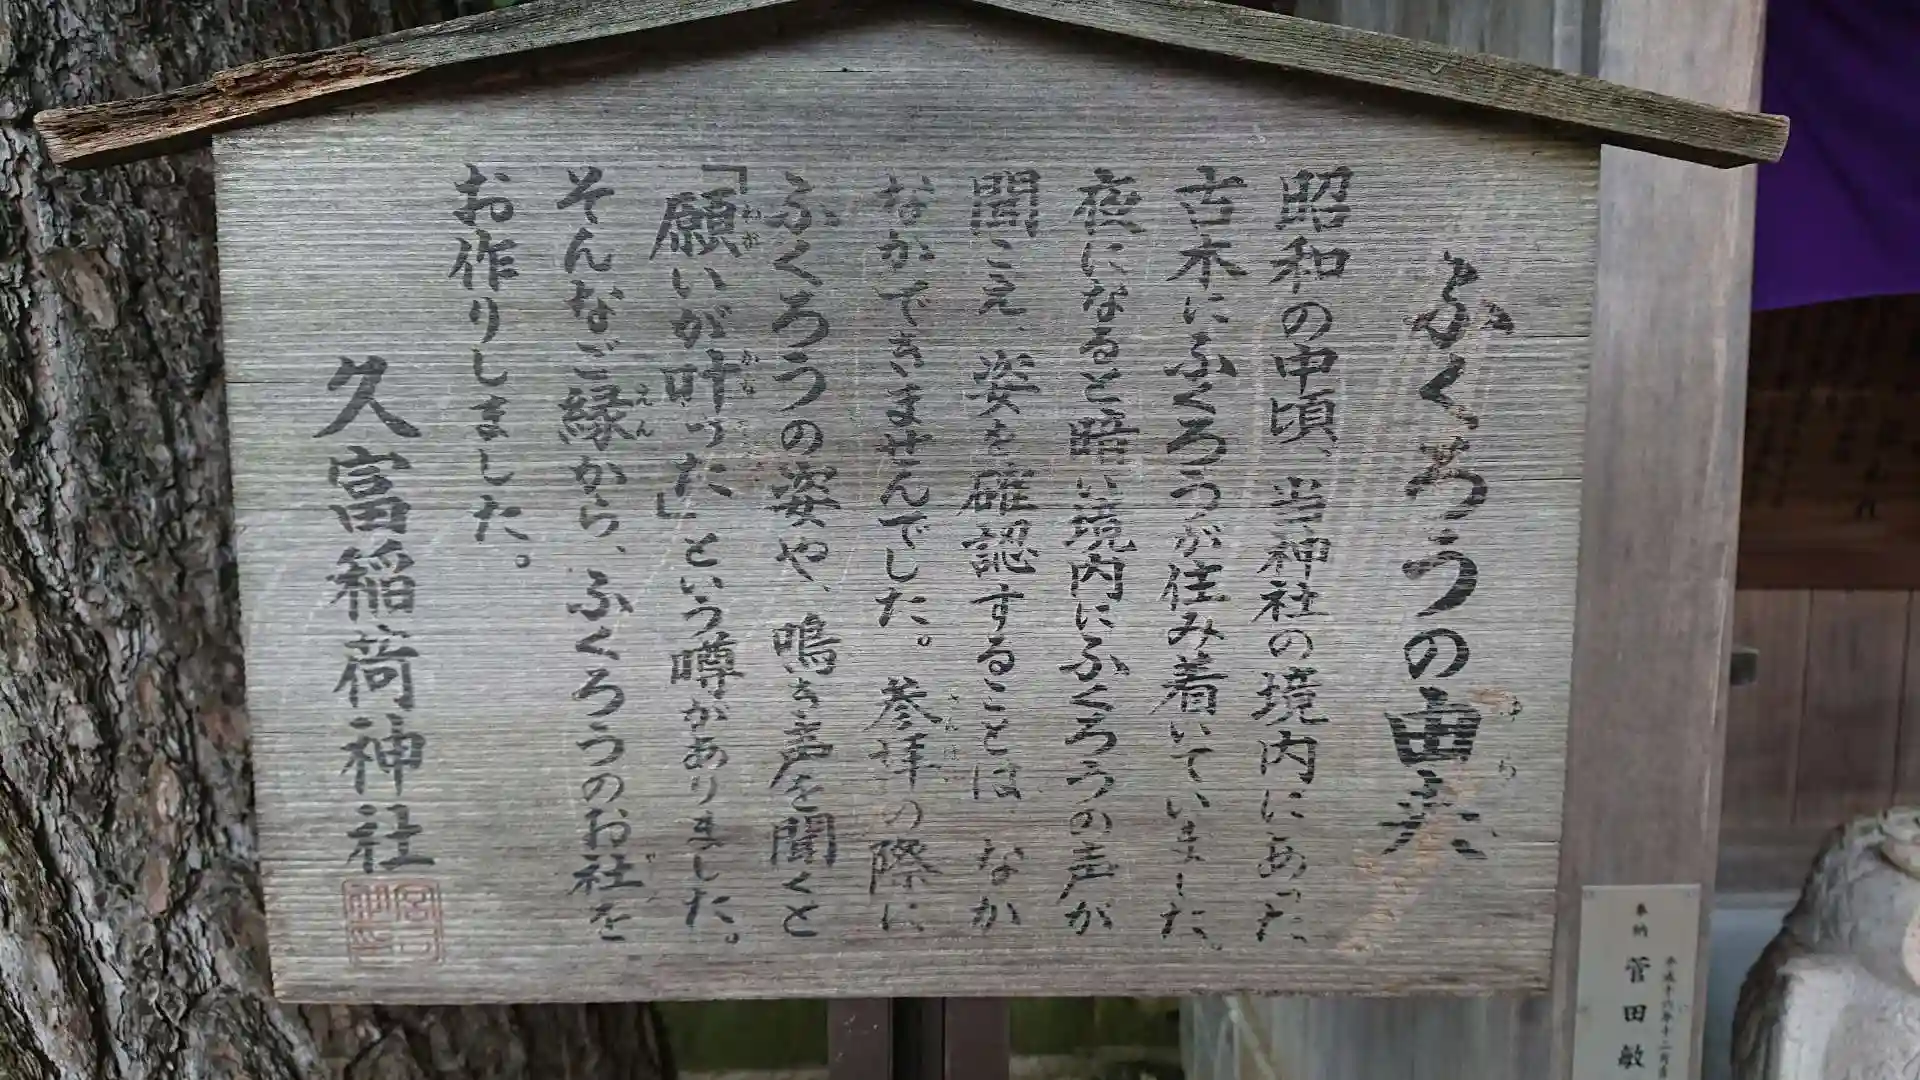 ふくろうの由来
昭和の中頃、当神社の境内にあった
古木にふくろうが住み着いていました。
夜になると暗い境内にふくろうの声が
聞こえ、姿を確認することは、なか
なかできませんでした。参拝の際に
ふくろうの姿や、鳴き声を聞くと
「願いが叶った」という噂がありました。
そんなご縁から、ふくろうのお社を
お作りしました。
久富稲荷神社
奉納
菅田敏